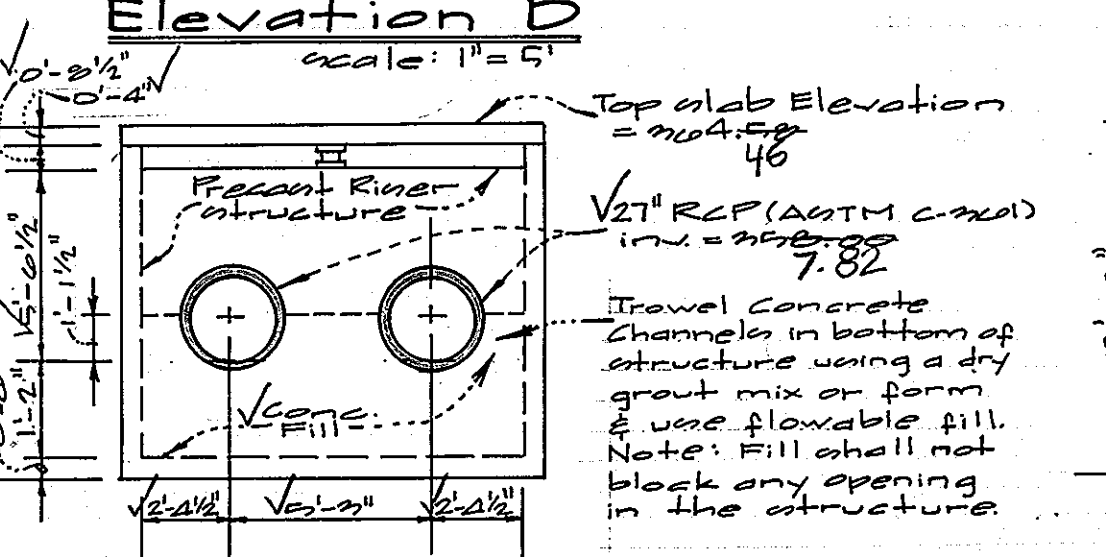 Elevation D
scale: 1" = 5'
0'-8½"
0'-4"
Top slab Elevation
= 364.58
46
Precast Riser
structure
27" RCP (ASTM C-361)
inv. = 358.00
7.82
5'-6½"
1'-1½"
1'-2"
Trowel Concrete
Channels in bottom of
structure using a dry
grout mix or form
& use flowable fill.
Note: Fill shall not
block any opening
in the structure.
Conc.
Fill
2'-4½" 5'-3" 2'-4½"